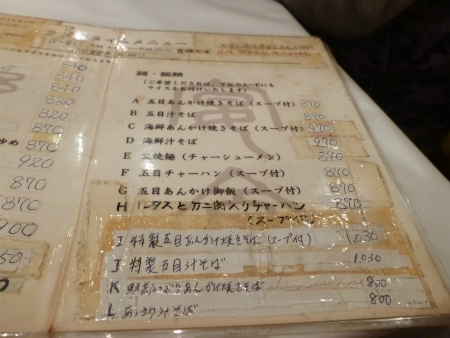 ランチタイムメニュー
830
820
870
870
920
870
870
900
麺・飯類
(ご希望くだされば、下記のA〜Eにも
ライスをお付けいたします)
A 五目あんかけ焼きそば(スープ付) 870
B 五目汁そば 870
C 海鮮あんかけ焼きそば(スープ付) 970
D 海鮮汁そば 970
E 叉焼麺(チャーシューメン) 870
F 五目チャーハン(スープ付) 870
G 五目あんかけ御飯(スープ付) 870
H レタスとカニ肉入りチャーハン 870
(スープ付)
I 特製五目あんかけ焼きそば(スープ付) 1,030
J 特製五目汁そば 1,030
K 野菜たっぷりあんかけ焼きそば 800
L あっさり汁そば 800